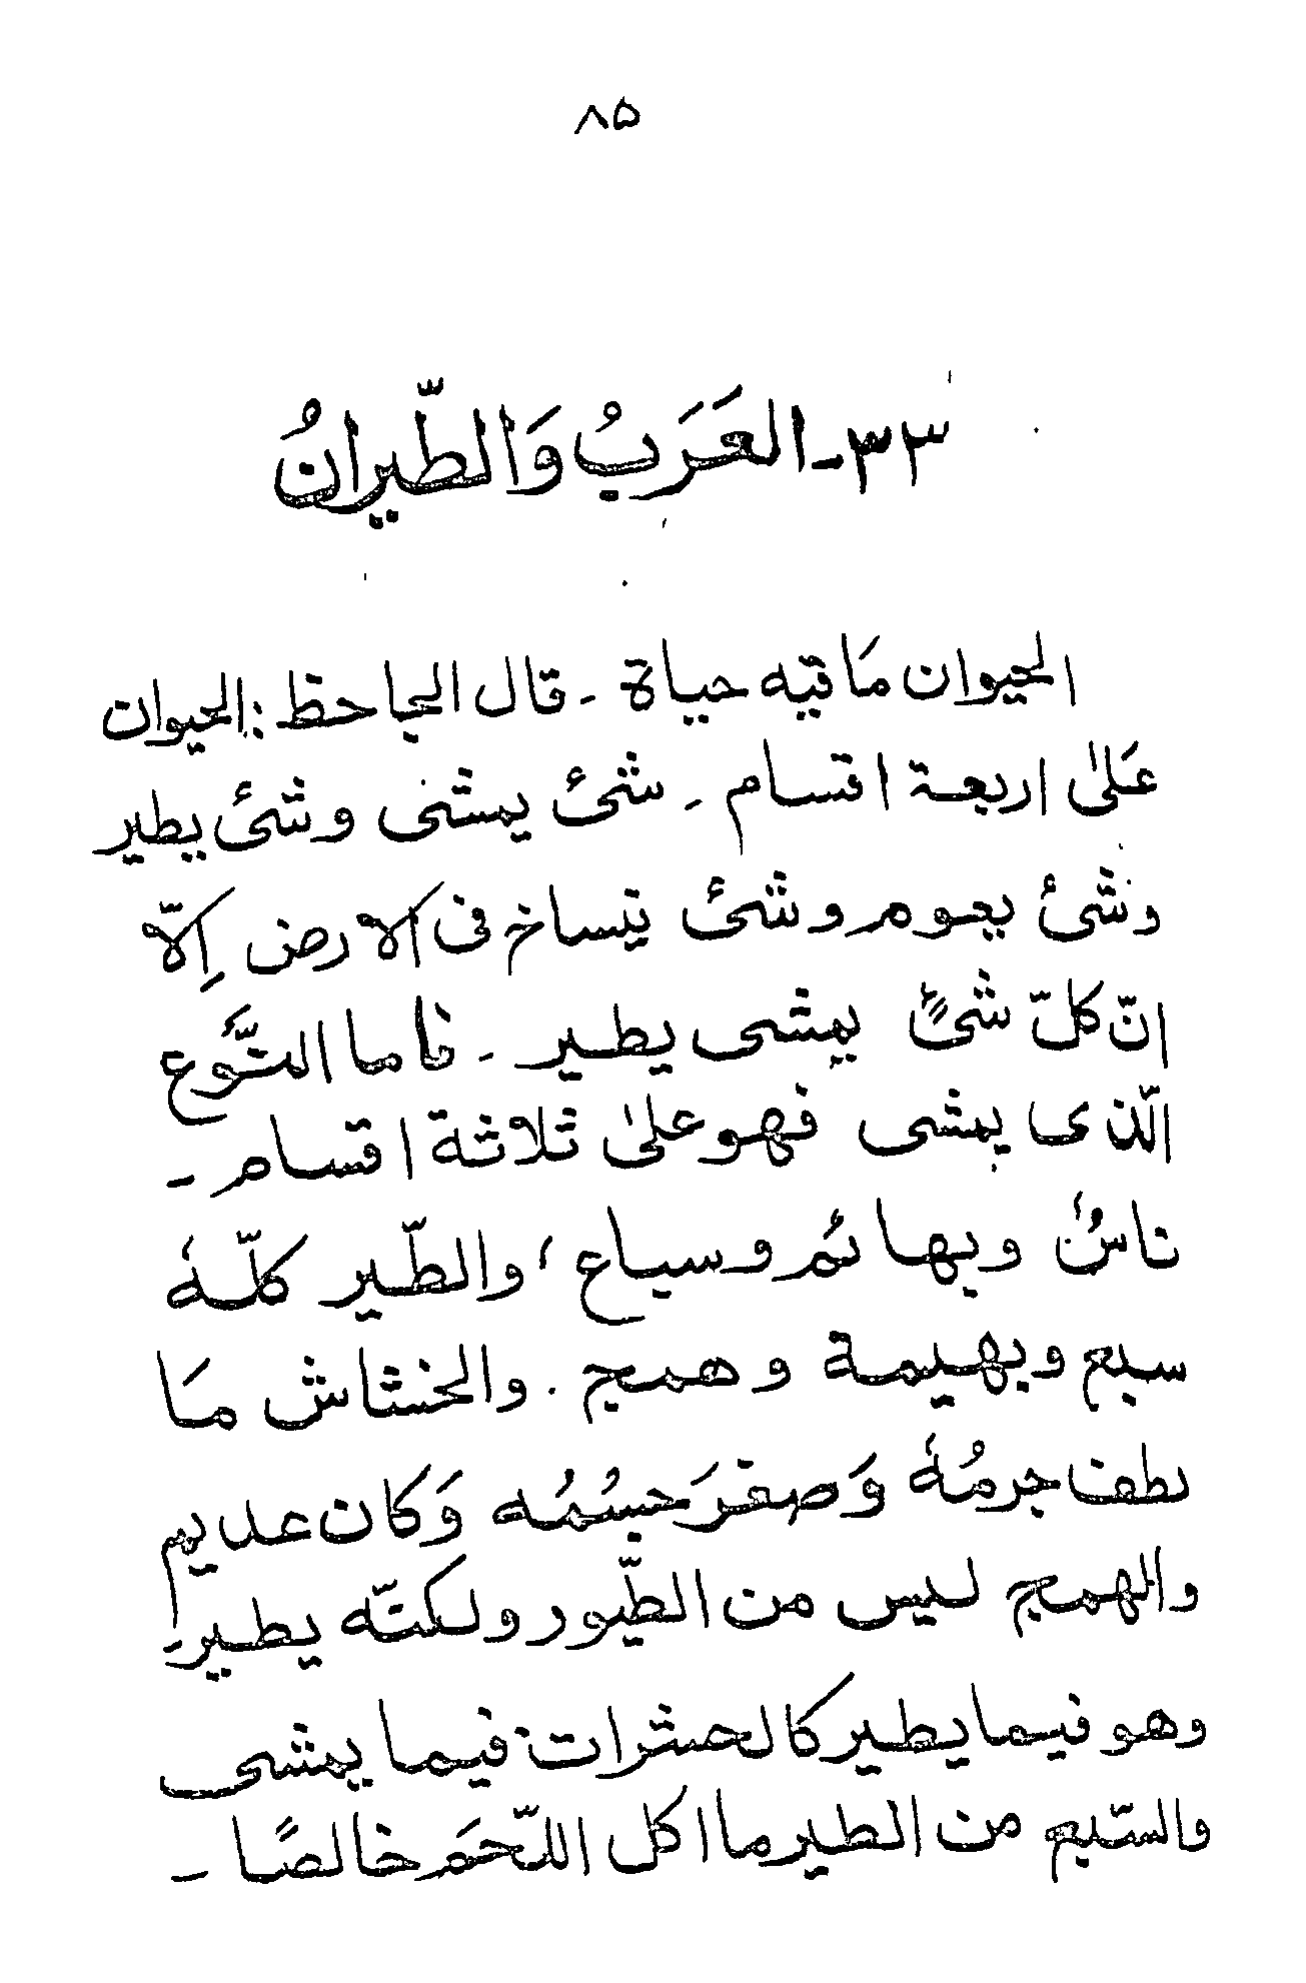 ۸۵
۳۳ـ العَرَبُ وَالطّيرانُ
الحيوان مَا فيه حياة ـ قال الجاحظ : الحيوان
عَلىٰ اربعة اقسام ـ شئ يمشى وشئ يطير
وشئ يعوم وشئ ينساخ فى الارض إلاّ
انّ كلّ شئٍ يمشى يطير ـ فاما النَّوع
الّذى يمشى فهو علىٰ ثلاثة اقسام ـ
ناسٌ وبهائم وسباع ، والطّير كلّهٗ
سبع وبهيمة وهمج . والخشاش مَا
لطف جرمُهٗ وَصغرَ جسُمُه وَكان عديم
والهمج ليس من الطّيور ولكنّه يطير
وهو فيما يطير كالحشرات فيما يمشى
والسّبع من الطير ما اكل اللّحَم خالصًا ـ